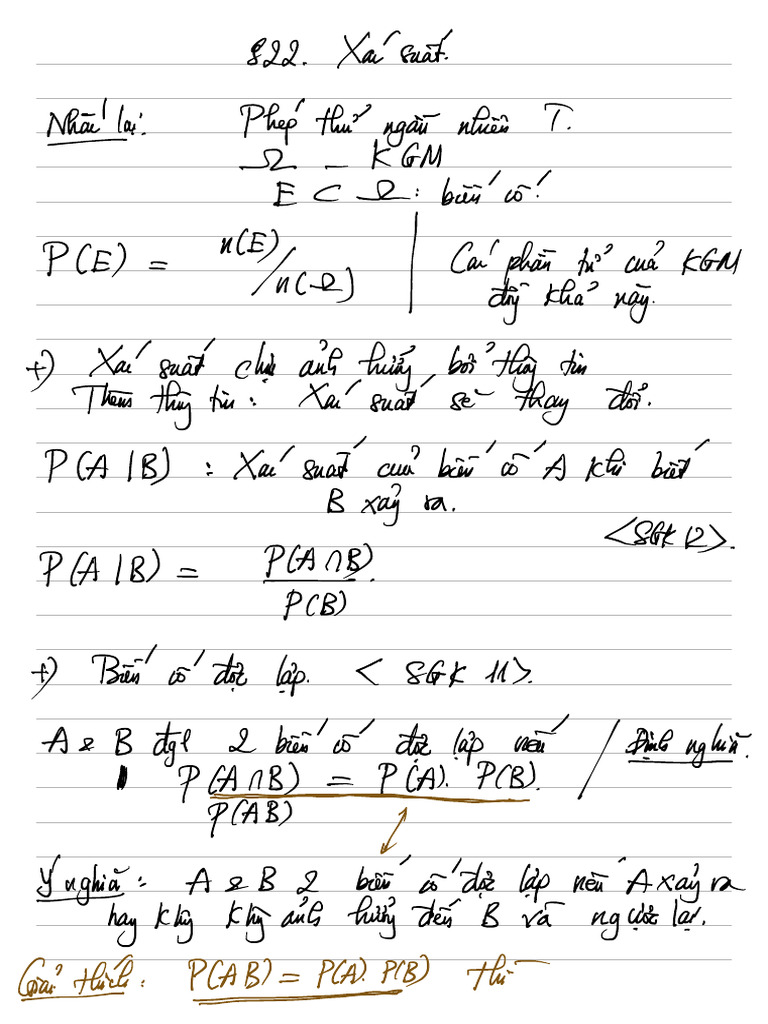 §22. Xác suất.
Nhắc lại: Phép thử ngẫu nhiên T.
Ω _ KGM
E ⊂ Ω : biến cố.
P(E) = n(E)/n(Ω) | Các phần tử của KGM
đồng khả năng.
+) Xác suất chịu ảnh hưởng bởi thông tin
Thêm thông tin: Xác suất sẽ thay đổi.
P(A|B) : Xác suất của biến cố A khi biết
B xảy ra.
<SGK 12>.
P(A|B) = P(A∩B)/P(B)
+) Biến cố độc lập. <SGK 11>.
A & B đgl 2 biến cố độc lập nếu / Định nghĩa.
P(A∩B) = P(A). P(B).
P(AB)
Ý nghĩa: A & B 2 biến cố độc lập nếu A xảy ra
hay không không ảnh hưởng đến B và ngược lại.
Giải thích: P(AB) = P(A). P(B) thì